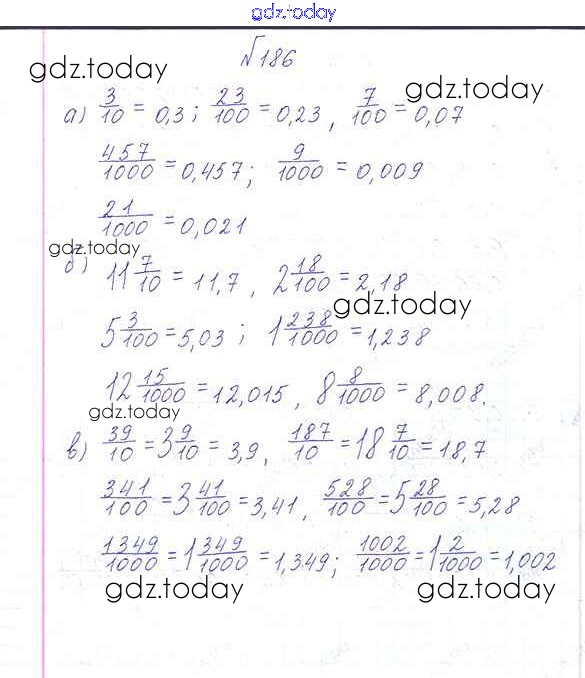 gdz.today
№186
gdz.today
gdz.today
а) 3/10 = 0,3; 23/100 = 0,23, 7/100 = 0,07
457/1000 = 0,457; 9/1000 = 0,009
21/1000 = 0,021
gdz.today
б) 11 7/10 = 11,7, 2 18/100 = 2,18
gdz.today
5 3/100 = 5,03; 1 238/1000 = 1,238
12 15/1000 = 12,015, 8 8/1000 = 8,008.
gdz.today
в) 39/10 = 3 9/10 = 3,9, 187/10 = 18 7/10 = 18,7
341/100 = 3 41/100 = 3,41, 528/100 = 5 28/100 = 5,28
1349/1000 = 1 349/1000 = 1,349; 1002/1000 = 1 2/1000 = 1,002
gdz.today
gdz.today